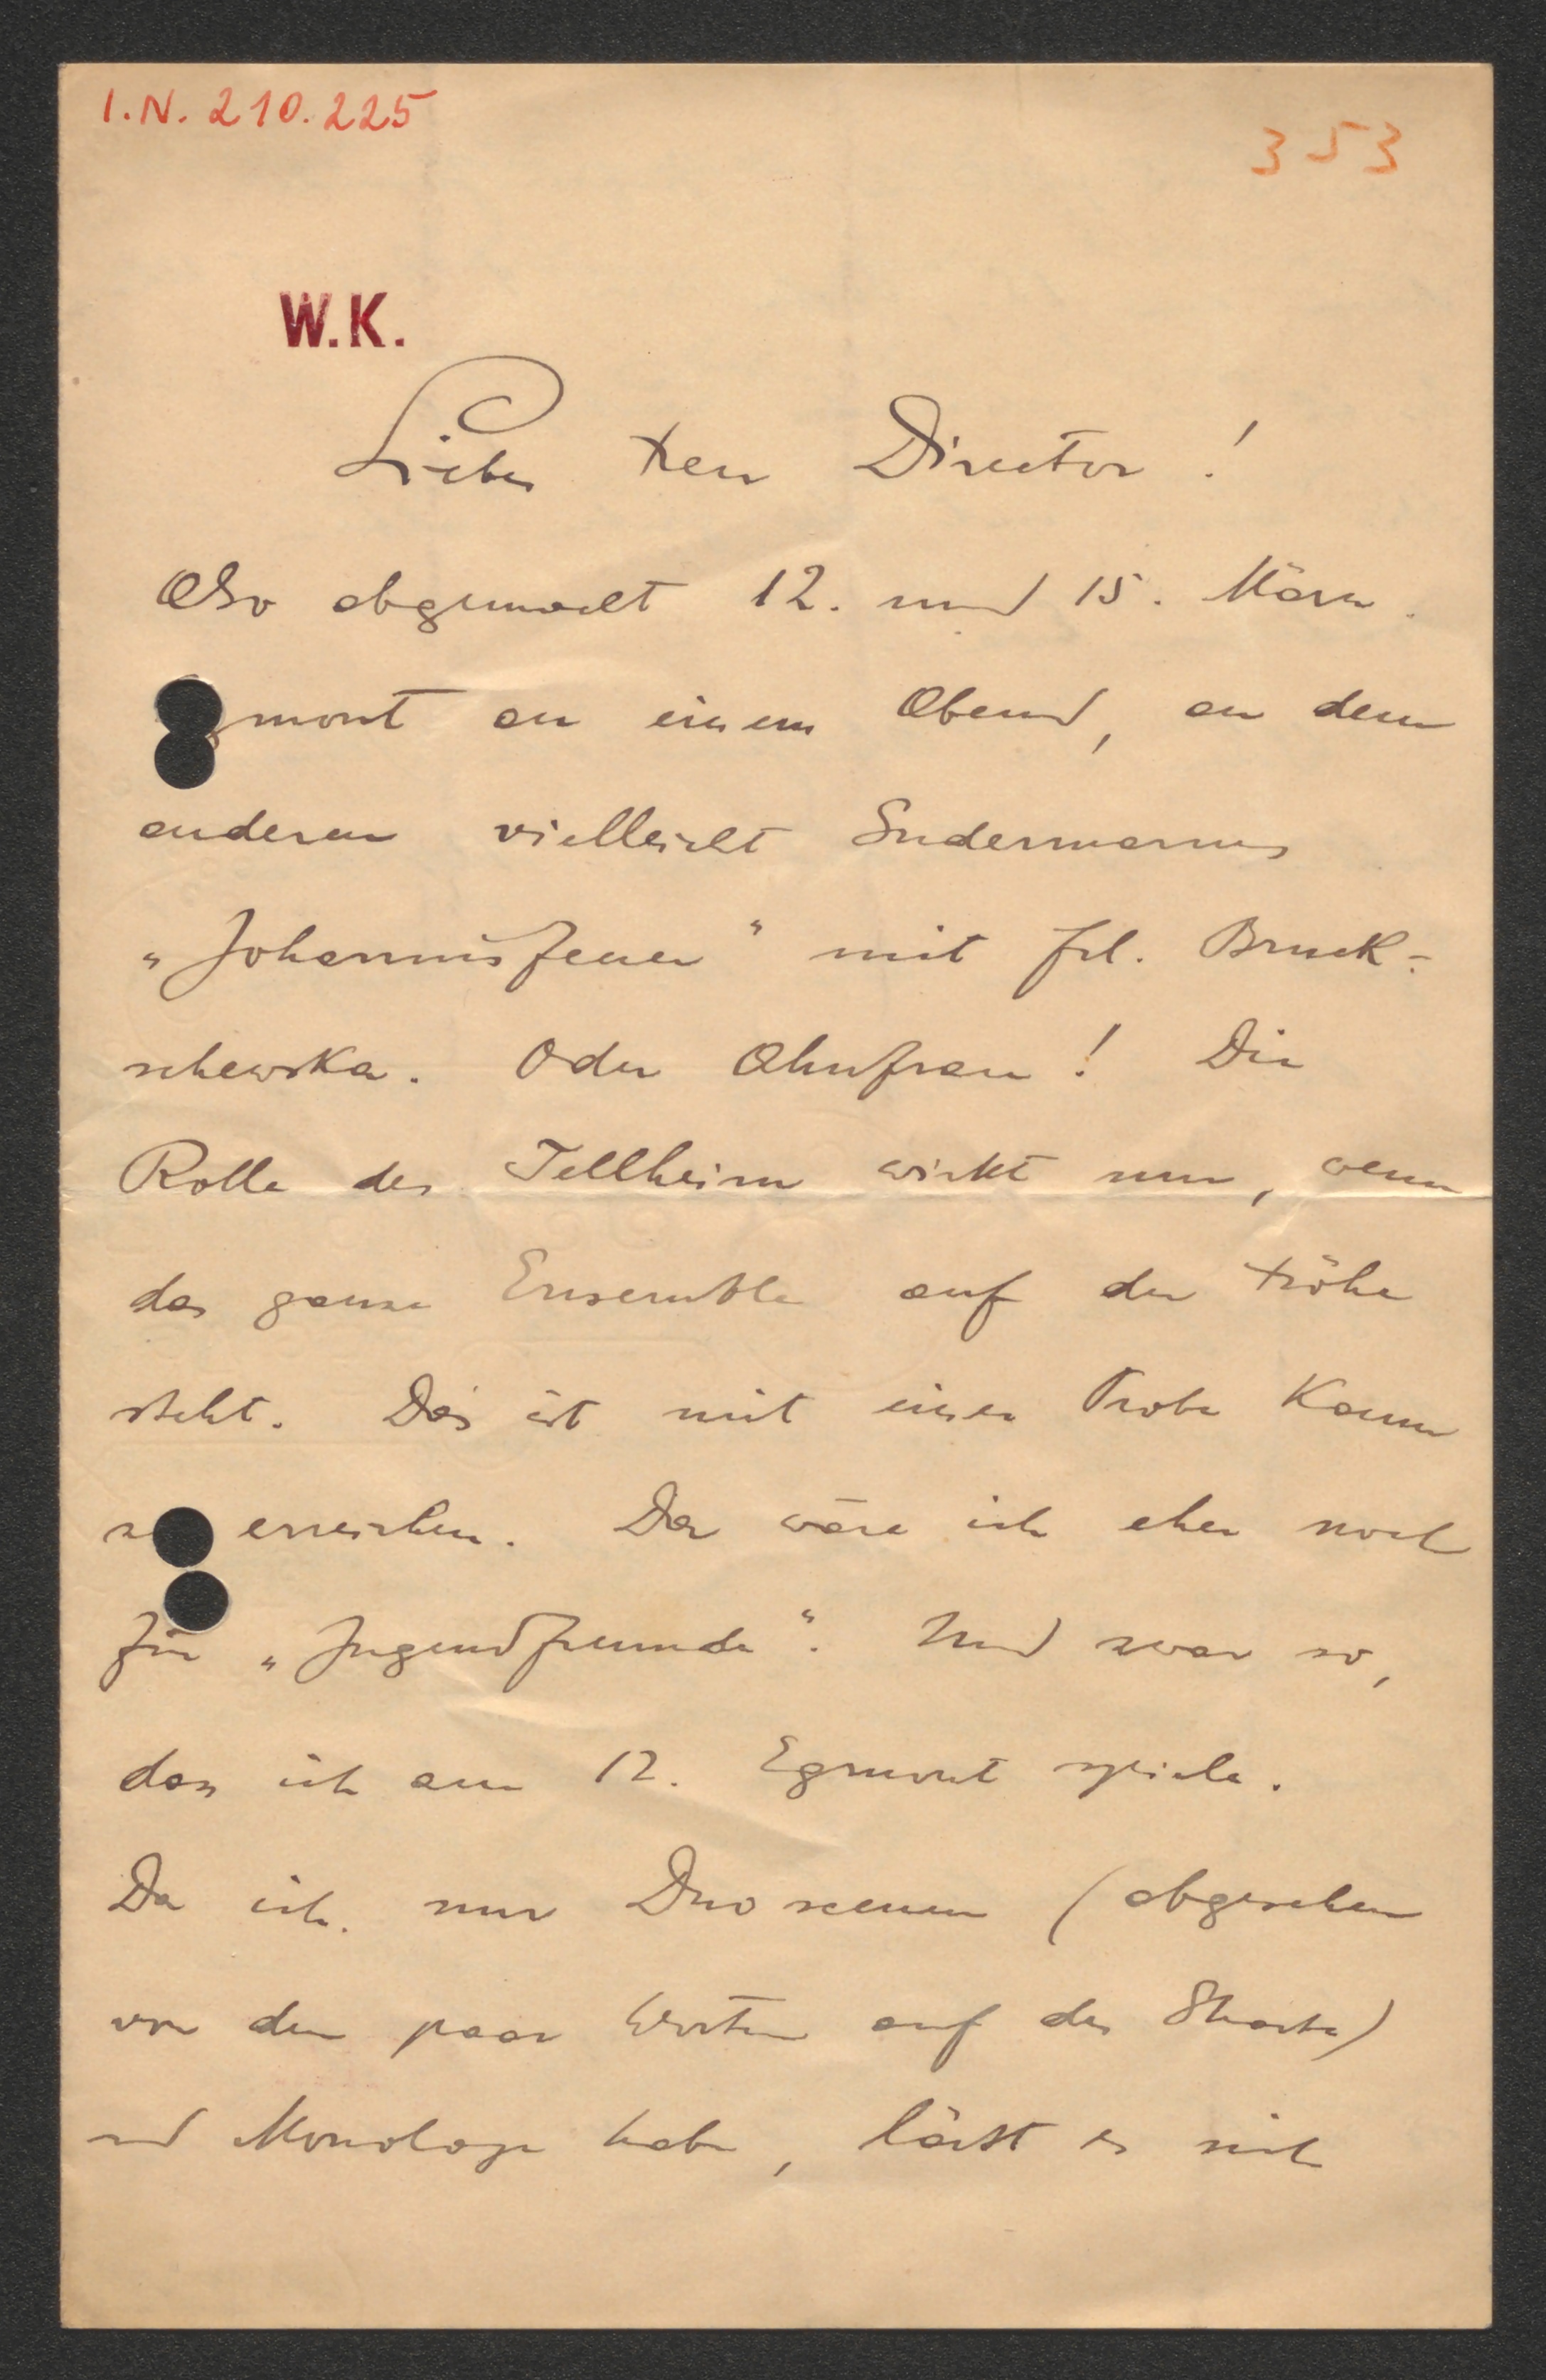 I.N. 210.225
353
W.K.
Lieber Herr Director!
Also abgemacht 12. und 15. März.
gmont an einem Abend, an dem
anderen vielleicht Sudermanns
„Johannisfeuer“ mit Frl. Bruck-
schewska. Oder Ahnfrau! Die
Rolle des Tellheim wirkt nur, wenn
das ganze Ensemble auf der Höhe
steht. Das ist mit einer Probe kaum
z erreichen. Da wäre ich eher noch
für „Jugendfreunde“. Und zwar so,
dass ich am 12. Egmont spiele.
Da ich nur Duoscenen (abgesehen
von den paar Worten auf der Strasse)
und Monologe habe, lässt es sich